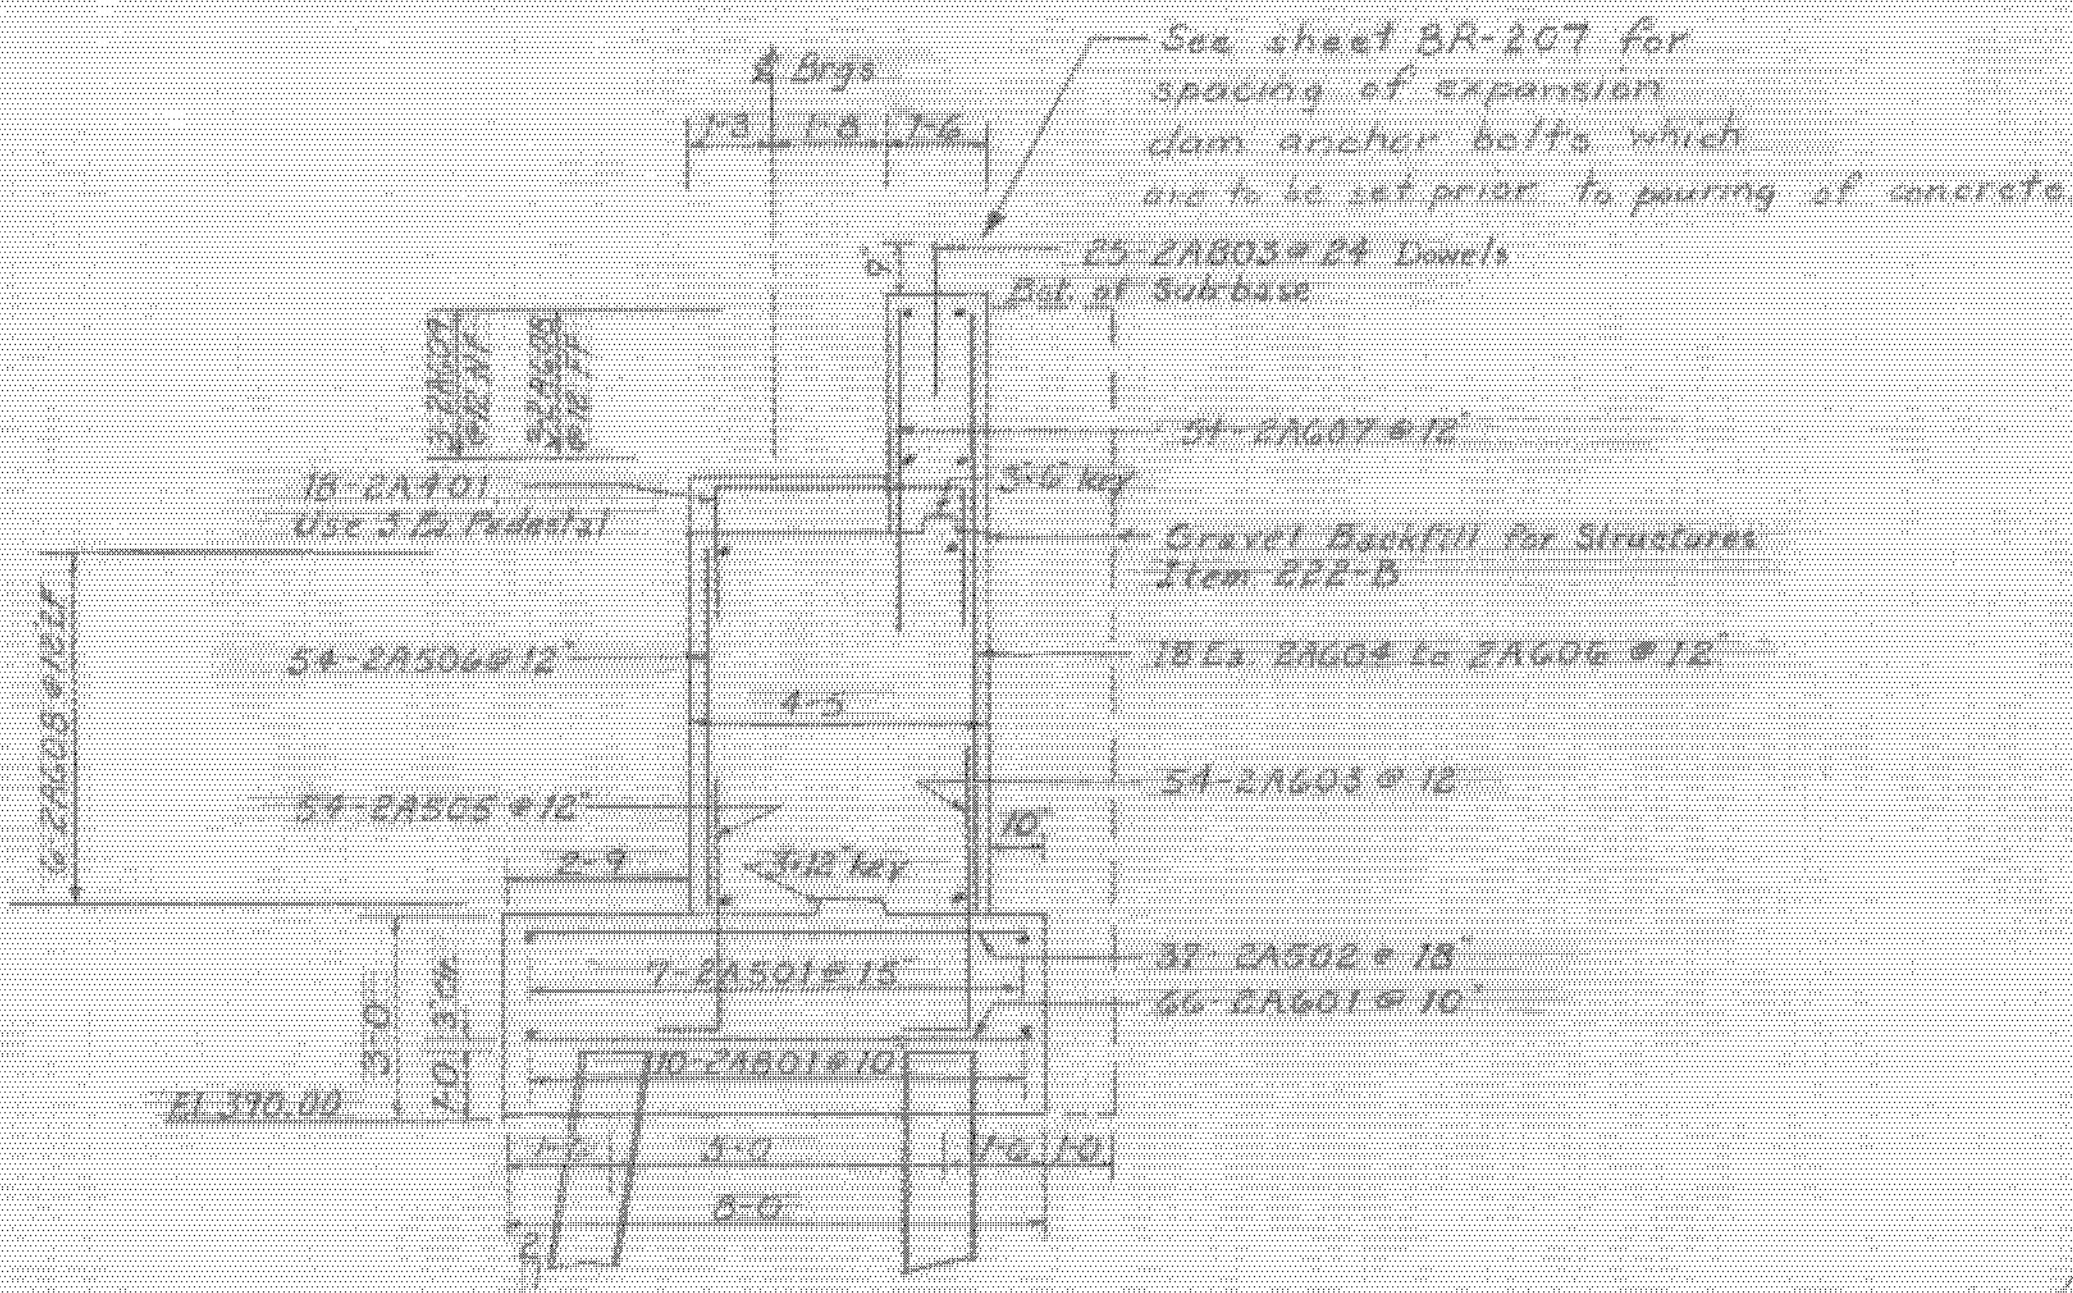 See sheet BR-207 for
spacing of expansion
dam anchor bolts which
are to be set prior to pouring of concrete.
℄ Brgs
1-3 1-8 1-6
25-2A803@24 Dowels
Bot. of Subbase
54-2A607@12"
18-2A401
Use 3 Ea. Pedestal
3×6" key
Gravel Backfill for Structures
Item 222-B
6-2A605@12EF
54-2A506@12"
18 Ea. 2A604 to 2A606 @ 12"
4-5
54-2A603@12
54-2A505@12"
10"
2-9
3×12" key
37-2A502@18"
7-2A501@15"
66-2A601@10"
3-0
3" Clr.
1-0
10-2A801@10
El 390.00
5-0
1-0
1-0
8-0
12